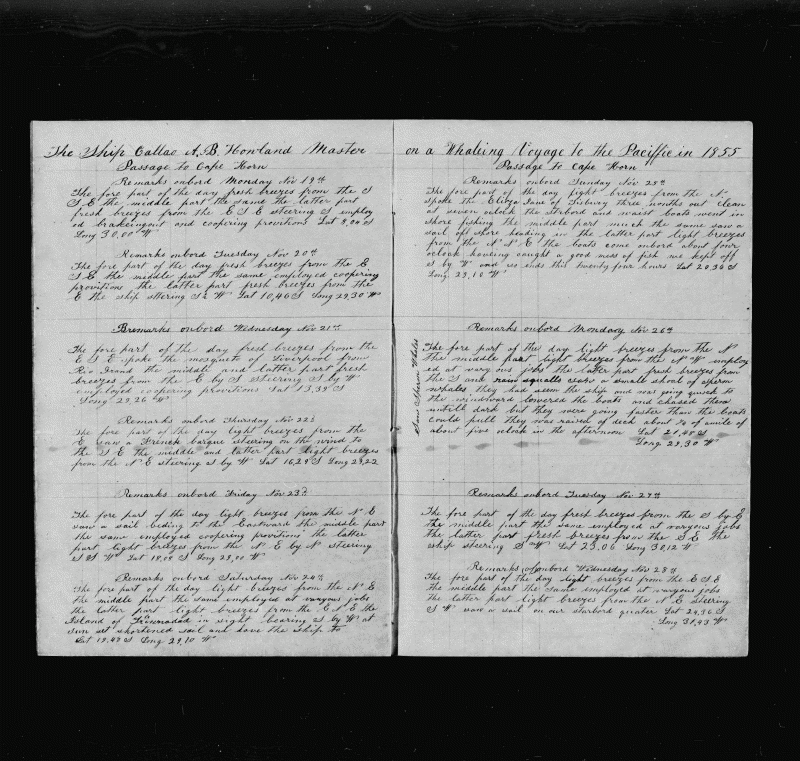 The Ship Callao A.B. Howland Master
Passage to Cape Horn
Remarks onbord Monday Nov 19th
The fore part of the day fresh breezes from the S
S E the middle part the same the latter part
fresh breezes from the E S E steering S employ
ed brakeingout and coopering provitions Lat
Long 30,00 W
Remarks onbord Tuesday Nov 20th
The fore part of the day fresh breezes from the E
S E the middle part the same employed coopering
provitions the latter part fresh breezes from the
E the ship stering Lat 10,46 S Long 29,30 W
Bremarks onbord Wednesday Nov 21st
The fore part of the day fresh breezes from the
E S E spoke the mosqueto of Liverpool from
Rio the middle and latter part fresh
breezes from the E by S Steering S by W
employed coopering provitions Lat 13,39 S
Long 29,26 W
Remarks onbord Thursday Nov 22d
The fore part of the day light breezes from the
E saw a French barque steering on the wind to
the S E the middle and latter part light breezes
from the N E steering S by W Lat 16,29 S Long 29,22
Remarks onbord Friday Nov 23d
The fore part of the day light breezes from the N E
saw a sail beding to the Eastward the middle part
the same employed coopering provitions the latter
part light breezes from the N E by N steering
S W Lat 18,00 S Long 29,00 W
Remarks onbord Saturday Nov 24th
The fore part of the day light breezes from the N E
the middle part the same employed at varyous jobs
the latter part light breezes from the E N E the
Island of Trinnadad in sight bearing S by W at
sun set shortened sail and hove the ship to
Lat 19,48 S Long 29,10 W
on a Whaleing Voyage to the Paciffic in 1855
Passage to Cape Horn
Remarks onbord Sunday Nov 25th
The fore part of the day light breezes from the N
spoke the Eliza Jane of Tisbury three months out clean
at seven oclock the starbord and waist boats went in
shore fishing the middle part much the same saw a
sail off shore heading in the latter part light breezes
from the N N E the boats come onbord about four
oclock haveing caught a good mess of fish we kept off
S by W and so ends this twenty four hours Lat 20,36 S
Long 29,10 W
Remarks onbord Monday Nov 26th
Saw Sperm Whales
The fore part of the day light breezes from the N
the middle part light breezes from the N W employ
ed at varyous jobs the latter part fresh breezes from
the S and rain squalls saw a small shoal of sperm
whales they had seen the ship and was going quick to
the windward lowered the boats and chased them
untill dark but they were going faster than the boats
could pull they was raised of deck about 3/4 of amile of
about five oclock in the afternoon Lat 21,48 S
Long 29,30 W
Remarks onbord Tuesday Nov 27th
The fore part of the day fresh breezes from the S by E
the middle part the same employed at varyous jobs
the latter part fresh breezes from the S E the
ship steering Lat 23,06 Long 30,12 W
Remarks onbord Wednesday Nov 28th
The fore part of the day light breezes from the E S E
the middle part the same employed at varyous jobs
the latter part light breezes from the N E steering
S W saw a sail on our starbord quarter Lat 24,36 S
Long 31,43 W